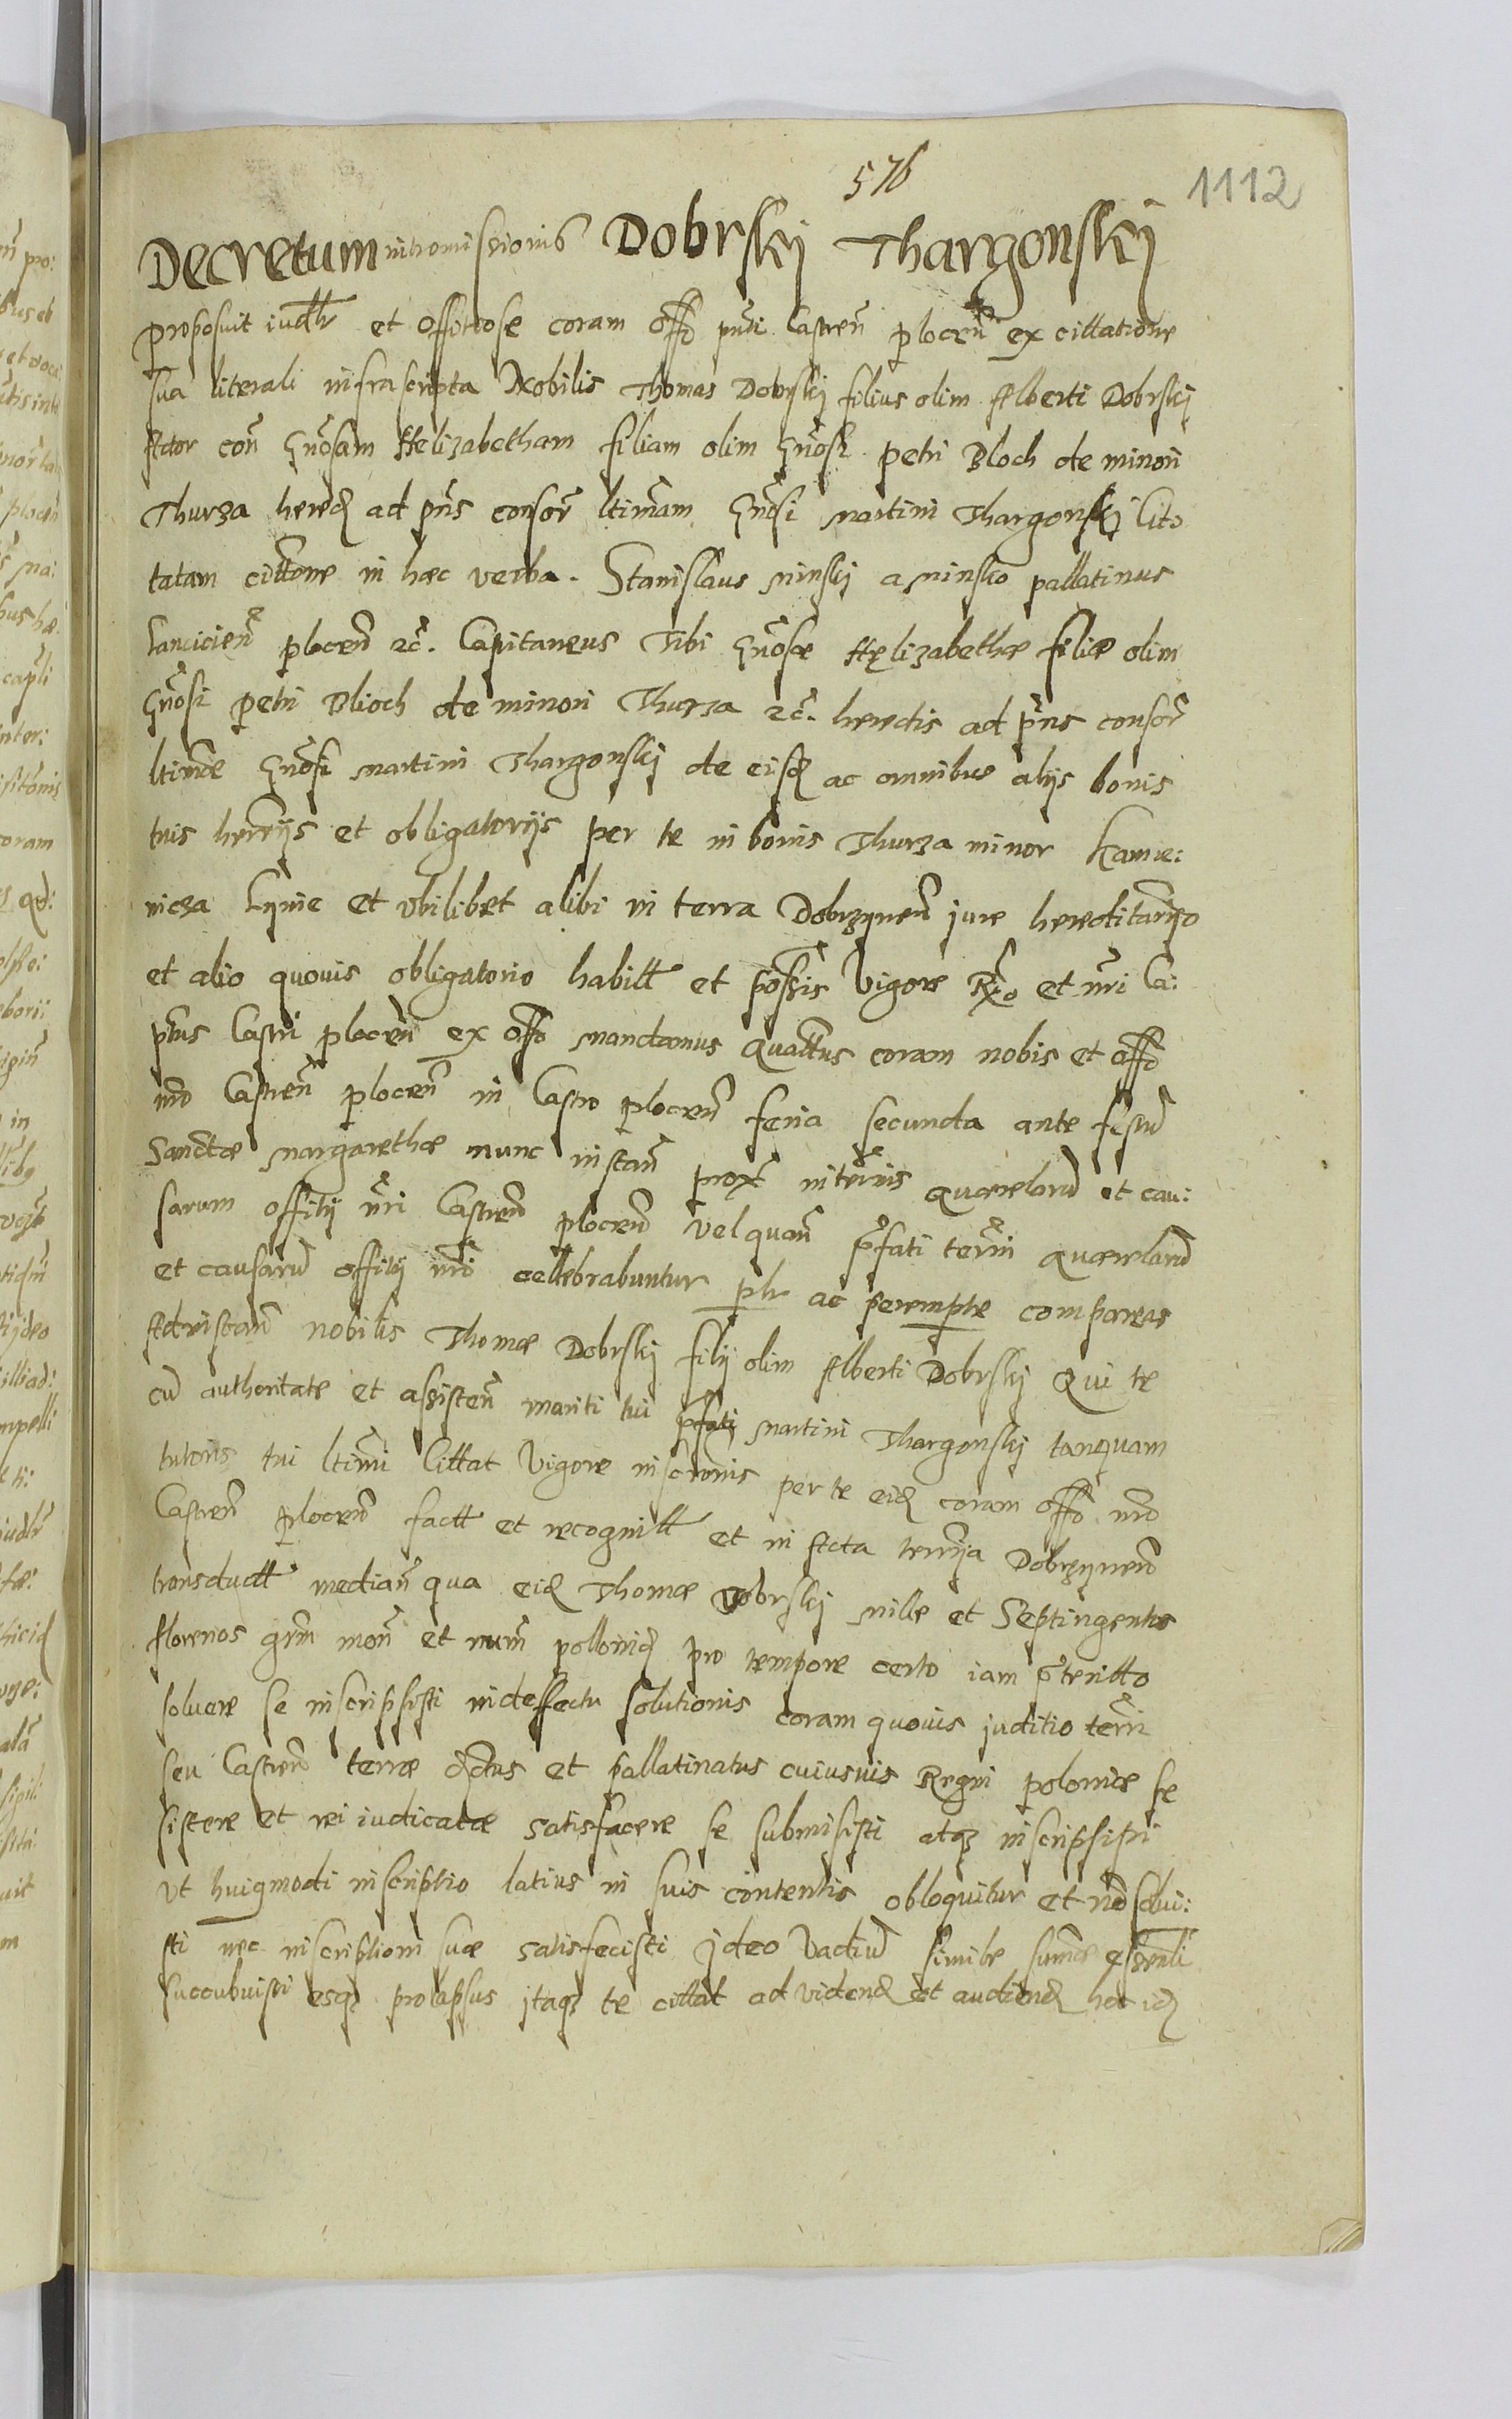 576
1112
Decretum intromissionis Dobrskj Thargonskj
proposuit iudlr et offitiose coram offo pnti Castren plocen ex cittatione
sua literali infrascripta Nobilis Thomas Dobrskj filius olim Alberti Dobrskj
Actor con Gnosam Helizabetham filiam olim Gnosi petri Bloch de minori
Thurza hered ad pns consor ltimam Gnosi Martini Thargonskj Cito
tatam cittone in haec verba. Stanislaus Minskj a Minsko pallatinus
Lancicien plocen 2c. Capitaneus Tibi Gnosae Helizabethae filiae olim
Gnosi petri Blioch de minori Thurza 2c. heredis ad pns consor
ltimae Gnosi Martini Thargonskj de eisd ac omnibus alijs bonis
tuis herrijs et obligatorijs per te in bonis Thurza minor Kamie:
nicza Lynie et ubilibet alibi in terra Dobrzynen jure hereditarijo
et alio quovis obligatorio habitt et possis Vigore Rgo et nri Ca:
ptus Castri plocen ex offo mandamus quattus coram nobis et offo
nro Castren plocen in Castro plocen feria secunda ante festu
Sanctae Margarethae nunc instan prox in termis quaerelaru et cau:
sarum offitij nri Castren plocen vel quan pfati termi quaerelaru
et causaru offitij nri cellebrabuntur ptr ac peremptre compareas
Ad instan nobilis Thomae Dobrskj filij olim Alberti Dobrskj Qui te
cu authoritate et assisten mariti tui pfati Martini Thargonskj tanquam
tutoris tui ltimi Cittat Vigore inscronis per te eid coram offo nro
Castren plocen factt et recognitt et in Acta terrrija Dobrzynen
transductt median qua eid Thomae Dobrskj mille et Septingentos
florenos grm mon et num pollonid pro tempore certo iam pteritto
soluere se inscripsisti in deffectu solutionis coram quovis juditio terri
seu Castren terrae dctus et pallatinatus cuiusvis Regni poloniae se
sistere et rei iudicatae satisfacere se submisisti atqz inscripsisti
ut huigmodi inscriptio latius in suis contentis obloquitur et no solvi:
sti nec inscriptioni suae satisfecisti Ideo Vadiu simile sumae essenli
succubuisti esqz prolapsus itaqz te cittat ad vidend et audiend hoc id